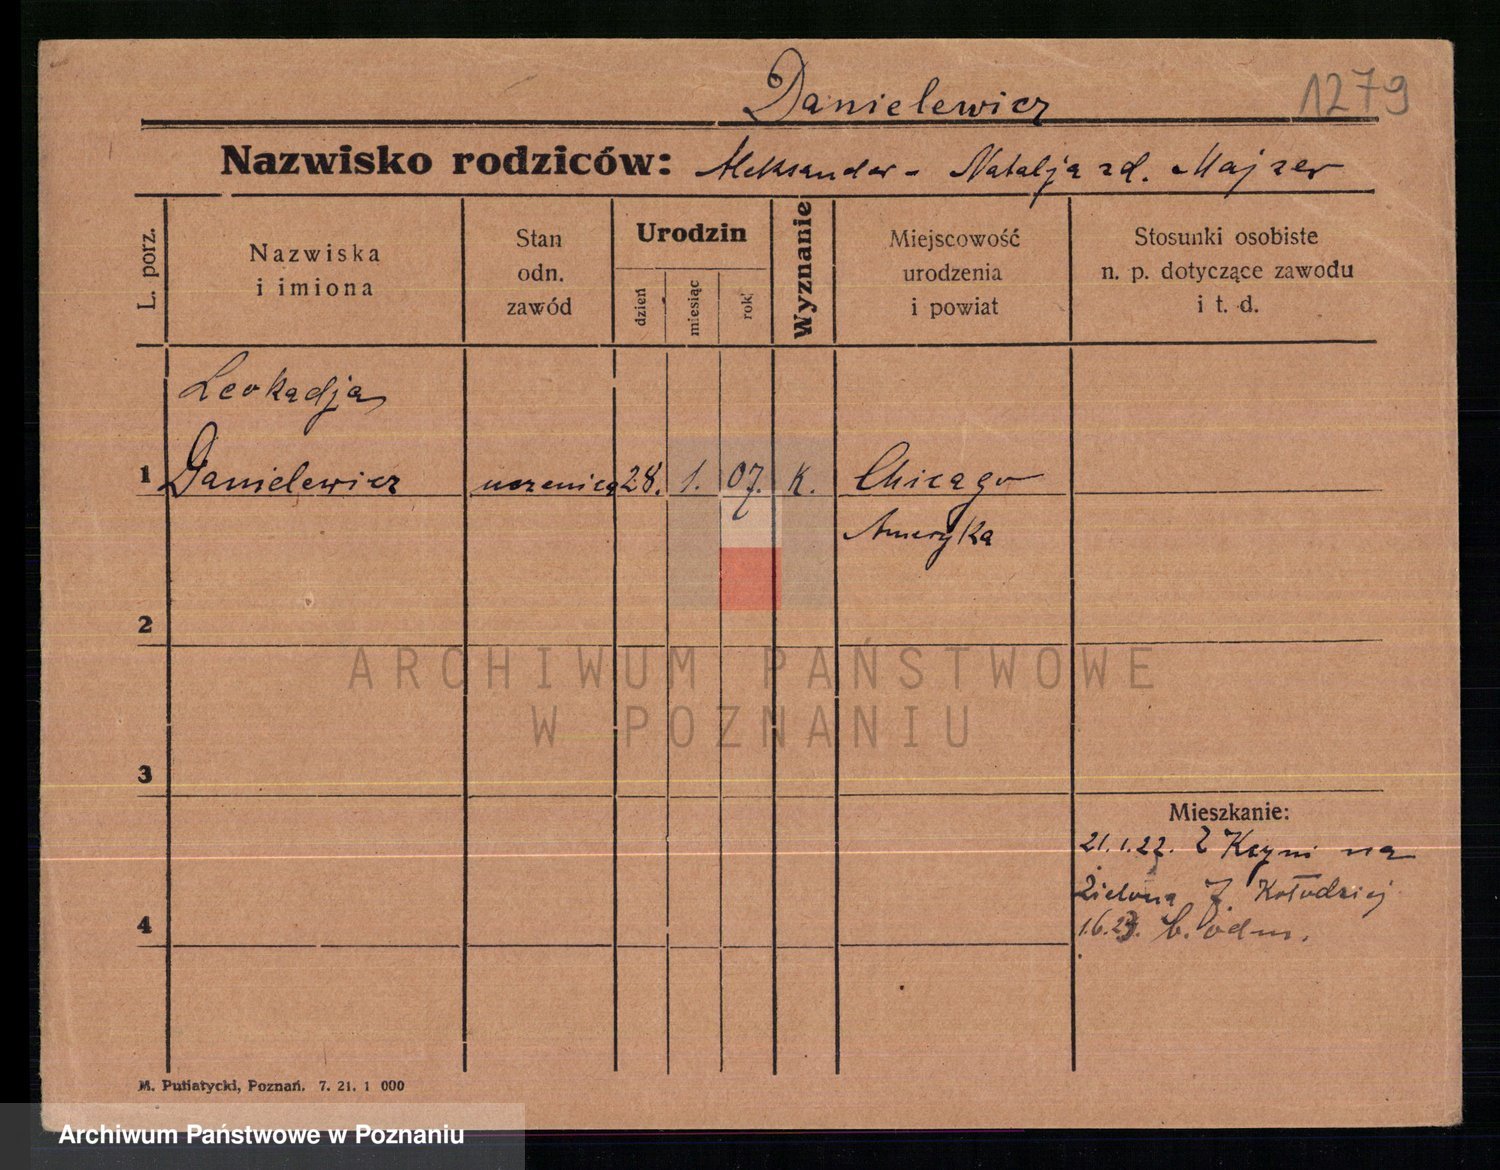 Danielewicz
1279
Nazwisko rodziców: Aleksander - Natalja zd. Majzer
L. porz.
Nazwiska
i imiona
Stan
odn.
zawód
Urodzin
dzień
miesiąc
rok
Wyznanie
Miejscowość
urodzenia
i powiat
Stosunki osobiste
n. p. dotyczące zawodu
i t. d.
Leokadja
1 Danielewicz uczenica 28. 1. 07. k. Chicago
Ameryka
2
ARCHIWUM PAŃSTWOWE
W POZNANIU
3
Mieszkanie:
21.1.22. Z Kcyni na
Zielona 7. Kołodziej
4
1.6.23. b. odm.
M. Putiatycki, Poznań. 7. 21. 1 000
Archiwum Państwowe w Poznaniu